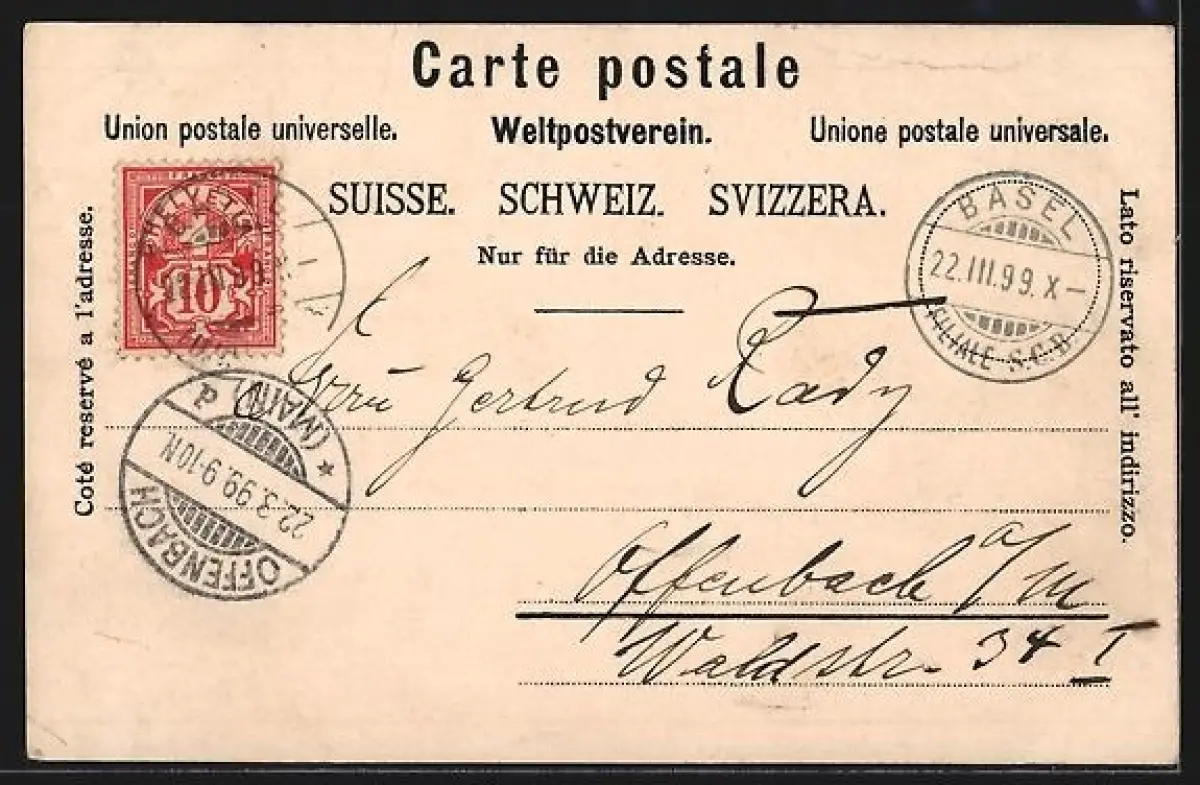 Carte postale
Union postale universelle. Weltpostverein. Unione postale universale.
SUISSE. SCHWEIZ. SVIZZERA.
Nur für die Adresse.
Coté reservé a l'adresse.
Lato riservato all' indirizzo.
FRANCO
HELVETIA
10
BASEL
22.III.99.X–
FILIALE S.C.B.
OFFENBACH
(MAIN) P
*
22.3.99.9-10N.
Gertrud Rady
Offenbach a/M
Waldstr. 34 I